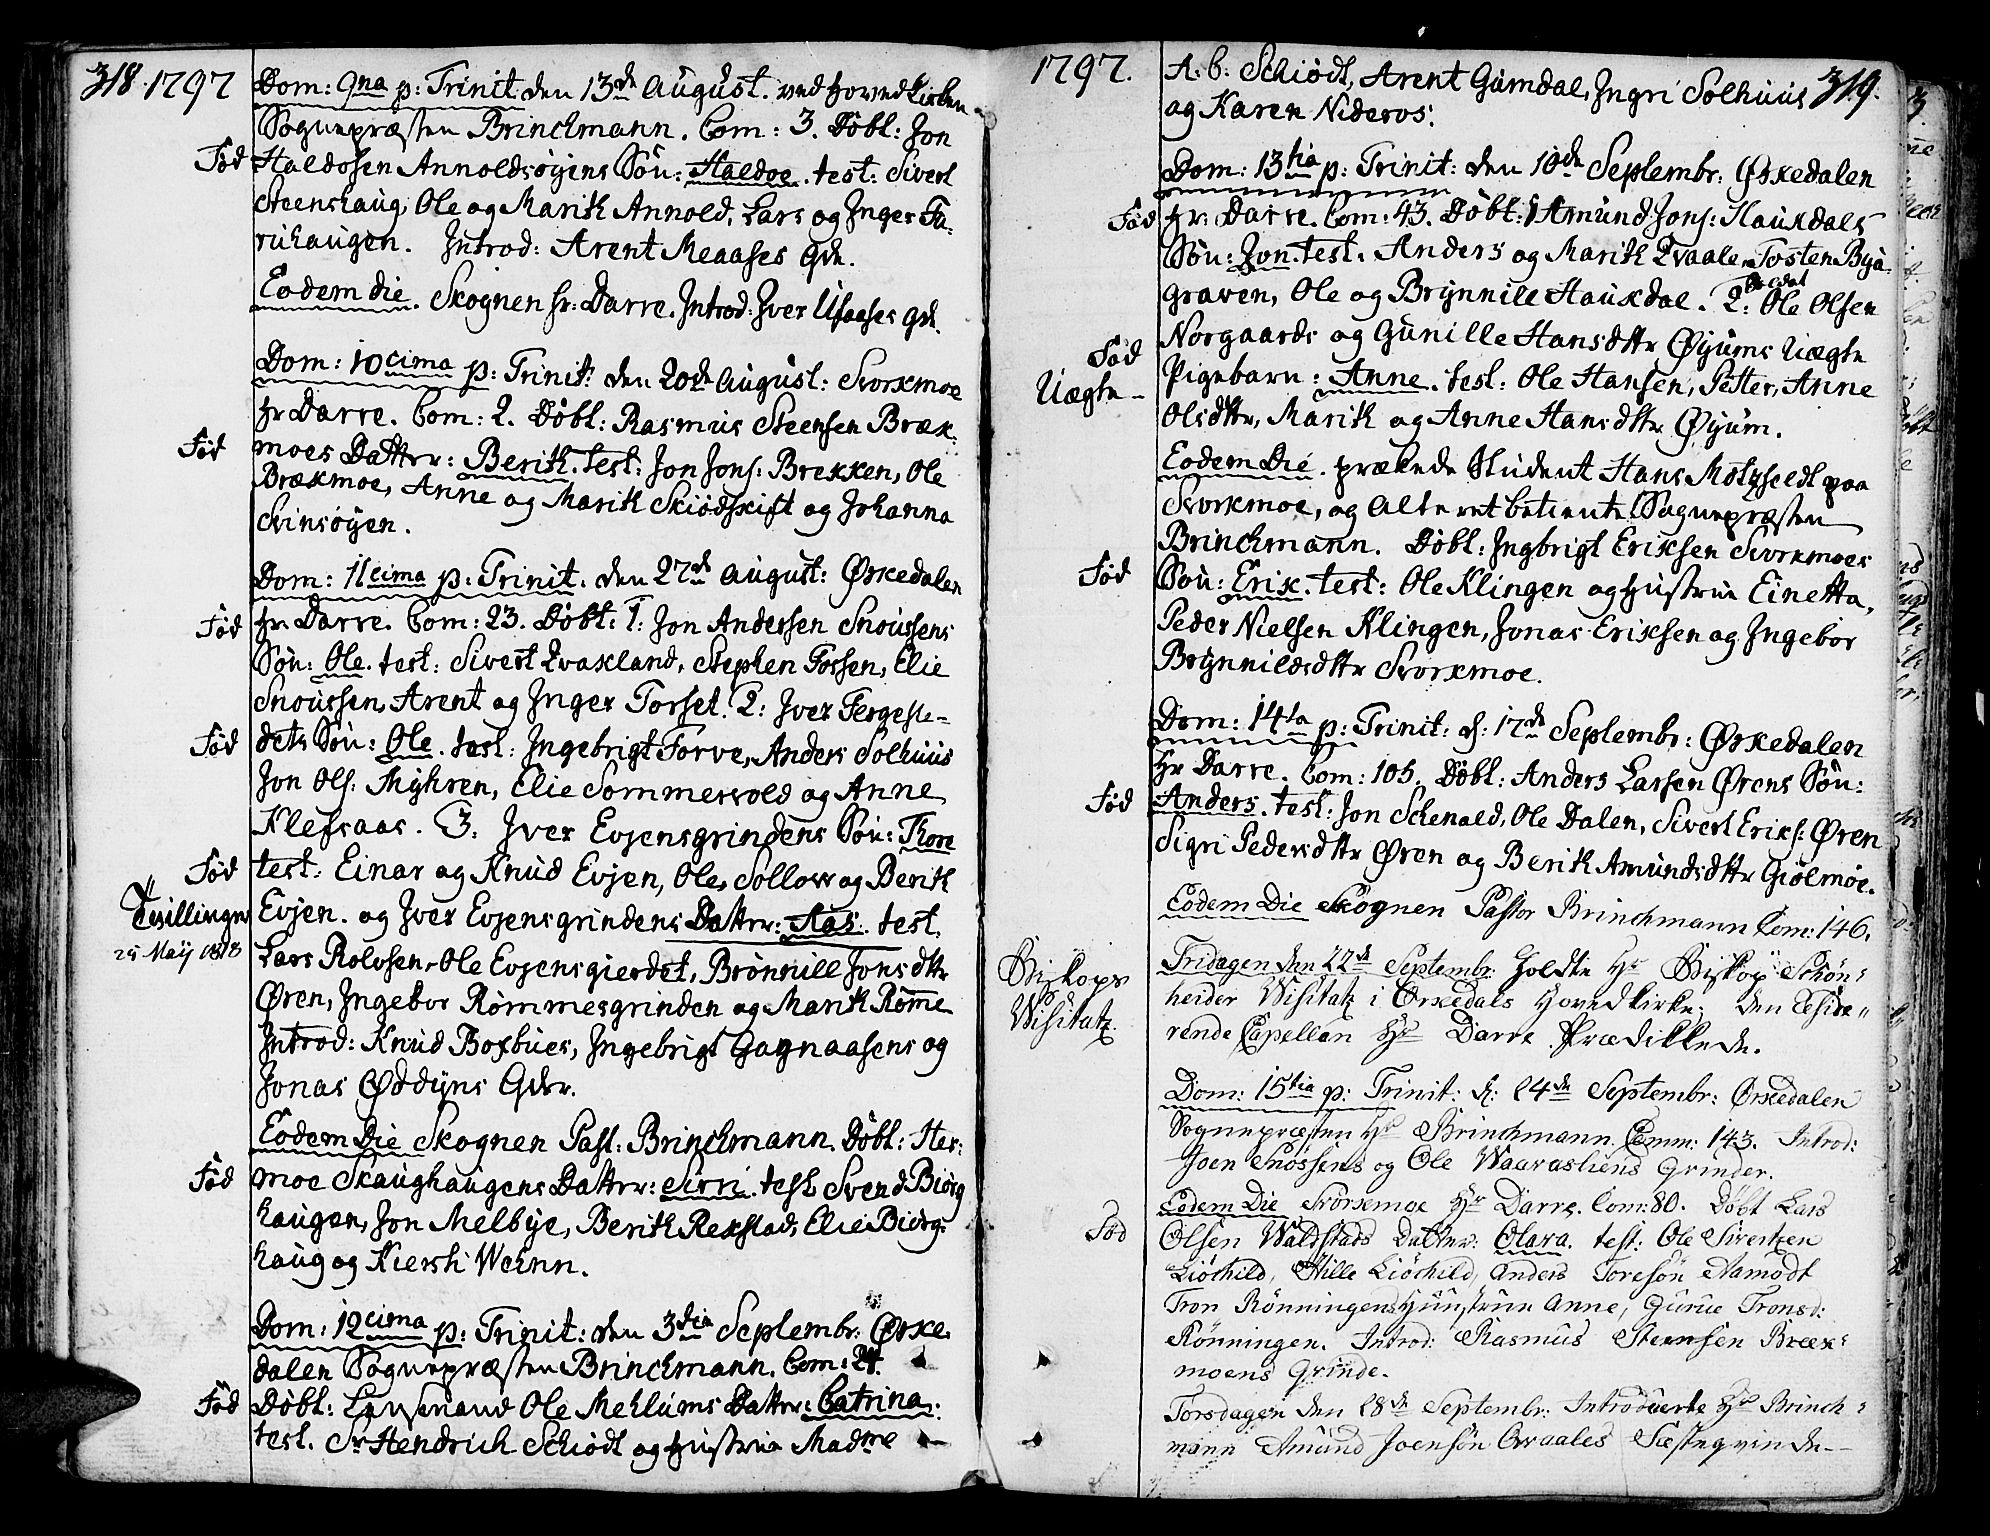 318. 1797
Dom: 9na p: Trinit den 13de August. ved Hovedkirken
Sognepræsten Brinchmann. Com: 3. Döbt: Jon
Fød Haldosen Annoldsøgens Sön: Haldoe. test: Sivert
Steenshaug, Ole og Marith Annold, Lars og Inger Fa-
ruhaugen. Introd: Arent Meaases Qde.
Eodem die. Skognen hr: Darre. Introd: Iver Ufsaases Qde.
Dom: 10cima p: Trinit: den 20de August: Svorkmoe
Hr Darre. Com: 2. Döbt: Rasmus Steensen Bræk:
Fød moes Datter: Berith. test: Jon Jons: Brekken, Ole
Brækmoe, Anne og Marith Skiødskift og Johanna
Svinsøyen.
Dom: 11cima p: Trinit. den 27de August: Ørkedalen
Fød Hr. Darre. Com: 23. Döbt: 1: Jon Andersen Snoussens
Sön: Ole. test: Sivert Qvakland, Stephen Fossen, Elie
Snoussen, Arent og Inger Forset. 2: Iver Fergeste-
Fød dets Sön: Ole. test: Ingebrigt Forve, Anders Solhuus
Jon Ols: Myhren, Elie Sommervold og Anne
Klefsaas. 3. Iver Evjensgrindens Sön: Thore
Fød test: Einar og Knud Evjen, Ole Sollow og Berith
Tvillinger Evjen. og Iver Evjensgrindens Datter: Aas. test.
25 May 1818 Lars Rolvsen, Ole Evjensgierdet, Brönnill Jonsdttr
Øren, Ingebor Rømmesgrinden og Marith Røme
Introd: Knud Boxbues, Ingebrigt Gagnaasens og
Jonas Øddyns Qder.
Eodem Die Skognen Past: Brinchmann. Döbt: Her:
Fød moe Skaughaugens Datter: Sirri. test Svend Biørg
haugen, Jon Melbye, Berith Rekstad, Elie Biørg:
haug og Kiersti Wehnn.
Dom: 12cima p: Trinit: den 3dia Septembr: Ørke
dalen Sognepræsten Brinchmann. Com: 24.
Fød Döbt: Ole Mehlums Datter: Catrina.
test. Sr Hendrich Schiødt og Hustrue Madme
1797. 319.
A: C: Schiødt, Arent Gumdal, Ingri Solhuus
og Karen Nideros.
Dom: 13tia p: Trinit: den 10de Septembr: Ørkedalen
Fød Hr: Darre. Com: 43. Döbt: 1 Amund Jons: Haukdals
Sön: Jon. test. Anders og Marith Qvaale, Tosten Bya-
graven, Ole og Brynnild Haukdal. 2: Ole Olsen
Norgaards og Gunille Hansdttr Øyums Uægte
Fød Uægte Pigebarn: Anne. test: Ole Hansen, Petter, Anne
Olsdttr, Marith og Anne Hansdttr Øyum.
Eodem Die. prækede Student Hans Motzfeldt paa
Svorkmoe, og Alteret betiente Sognepræsten
Brinchmann. Döbt: Ingbrigt Eriksen Svorkmoes
Fød Sön: Erik. test: Ole Klingen og Hustrue Einetta,
Peder Nielsen Klingen, Jonas Eriksen og Ingebor
Brynnildsdttr Svorkmoe.
Dom: 14ta p: Trinit: d: 17de Septembr: Ørkedalen
Hr Darre. Com: 105. Döbt: Anders Larsen Ørens Sön:
Fød Anders. test: Jon Schenald, Ole Dalen, Sivert Eriks: Øren
Sigri Pedersdttr Øren og Berith Amundsdttr Giølmoe.
Eodem Die Skognen Pastor Brinchmann Com: 146.
Biskops Wisitatz. Fridagen den 22de Septembr: holdte Hr Biskop Schön:
heider Wisitatz i Ørkedals Hovedkirke; den Reside:
rende Capellan Hr Darre Prædikkede.
Dom: 15tia p: Trinit: d: 24de Septembr: Ørkedalen
Sognepræsten Hr Brinchmann Comm: 143. Introd:
Joen Snössens og Ole Waarasliens Qrinder.
Eodem Die Svorkemoe Hr Darre. Com: 80. Döbt Lars
Fød Olsen Waldstads Datter: Olara. test: Ole Sivertzen
Liöchild, Nille Liöchild, Anders Toresön Aamodt
Tron Rönningens Huustrue Anne, Gurue Tronsd:
Rönningen. Introd: Rasmus Steensen Bræk:
moens Qrinde.
Torsdagen den 28de Septembr: Introducerte Hr Brinch:
mann Amund Joensön Qvaales Fæsteqvinde